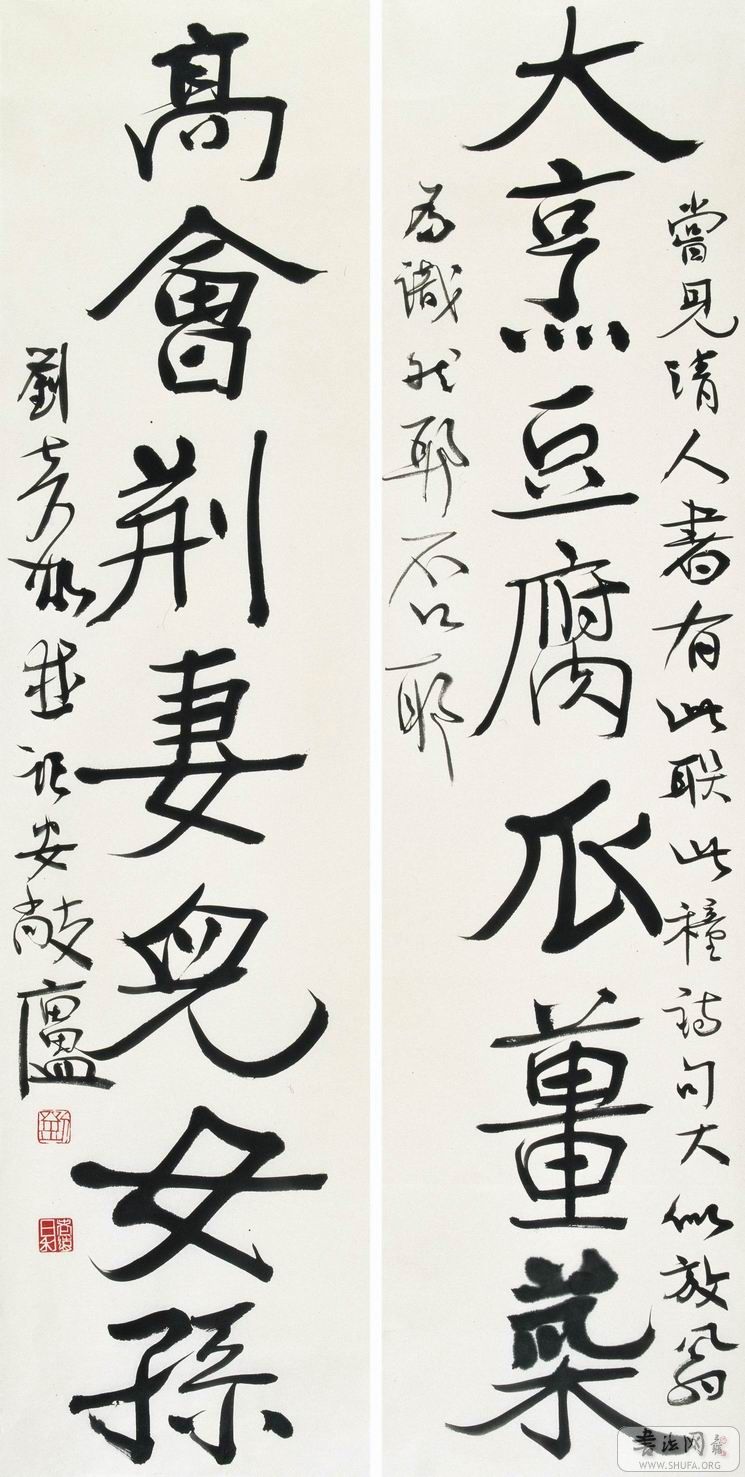 大烹豆腐瓜薑菜
嘗見清人書有此联此種詩句大似放翁
為識然耶否耶
高會荊妻兒女孫
劉 並記安敞廬
書法网
WWW.SHUFA.ORG